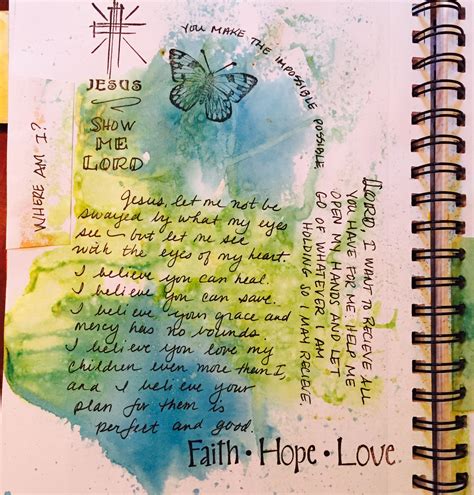 YOU MAKE THE IMPOSSIBLE POSSIBLE
JESUS
SHOW
ME
LORD
WHERE AM I?
Jesus, let me not be
swayed by what my eyes
see – but let me see
with the eyes of my heart.
I believe you can heal.
I believe you can save.
I believe your grace and
mercy has no bounds.
I believe you love my
children even more than I,
and I believe your
plan for them is
perfect and good.
LORD, I WANT TO RECIEVE ALL
YOU HAVE FOR ME. HELP ME
OPEN MY HANDS AND LET
GO OF WHATEVER I AM
HOLDING SO I MAY RECIEVE.
Faith • Hope • Love